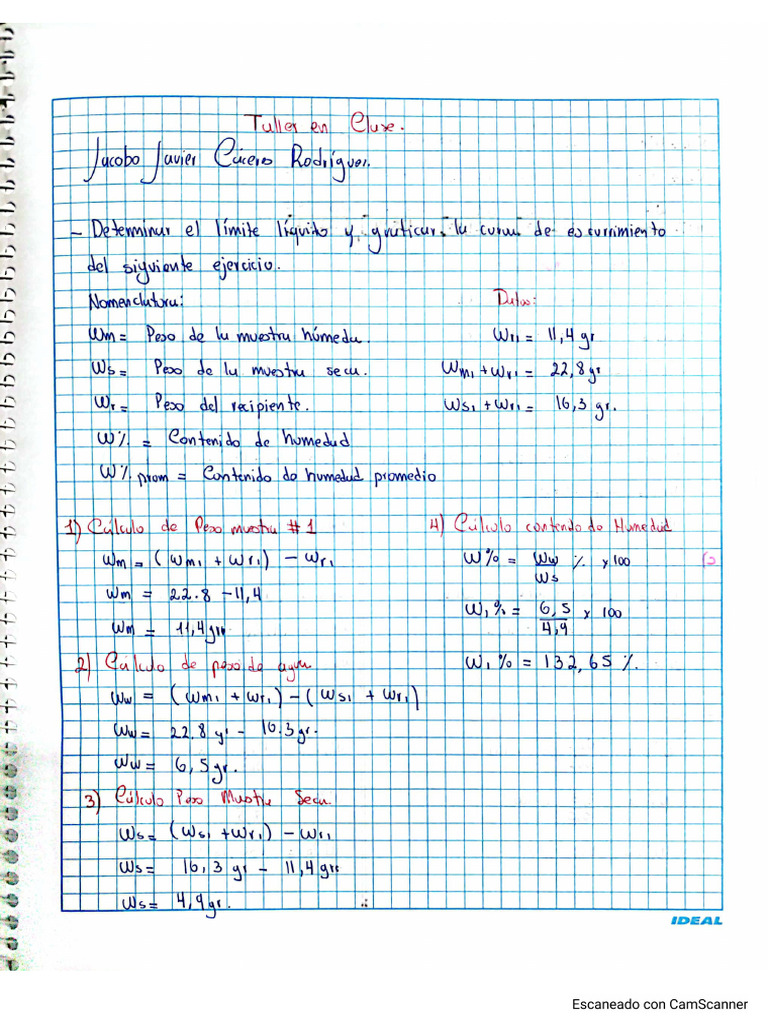 Taller en Clase.
Jacobo Javier Cáceres Rodríguez.
- Determinar el límite líquito y graficar la curva de escurrimiento
del siguiente ejercicio.
Nomenclatura:
Datos:
Wm = Peso de la muestra húmeda.
Wr1 = 11,4 gr
Ws = Peso de la muestra seca.
Wm1 + Wr1 = 22,8 gr
Wr = Peso del recipiente.
Ws1 + Wr1 = 16,3 gr.
W% = Contenido de humedad
W% prom = Contenido de humedad promedio
1) Cálculo de Peso muestra #1
Wm = (Wm1 + Wr1) - Wr1
Wm = 22.8 - 11,4
Wm = 11,4 gr
2) Cálculo de peso de agua
Ww = (Wm1 + Wr1) - (Ws1 + Wr1)
Ww = 22.8 gr - 16.3 gr.
Ww = 6,5 gr.
3) Cálculo Peso Muestra Seca
Ws = (Ws1 + Wr1) - Wr1
Ws = 16,3 gr - 11,4 gr
Ws = 4,9 gr.
4) Cálculo contenido de Humedad
W% = Ww % x 100
Ws
W1% = 6,5 x 100
4,9
W1% = 132,65 %.
IDEAL
Escaneado con CamScanner